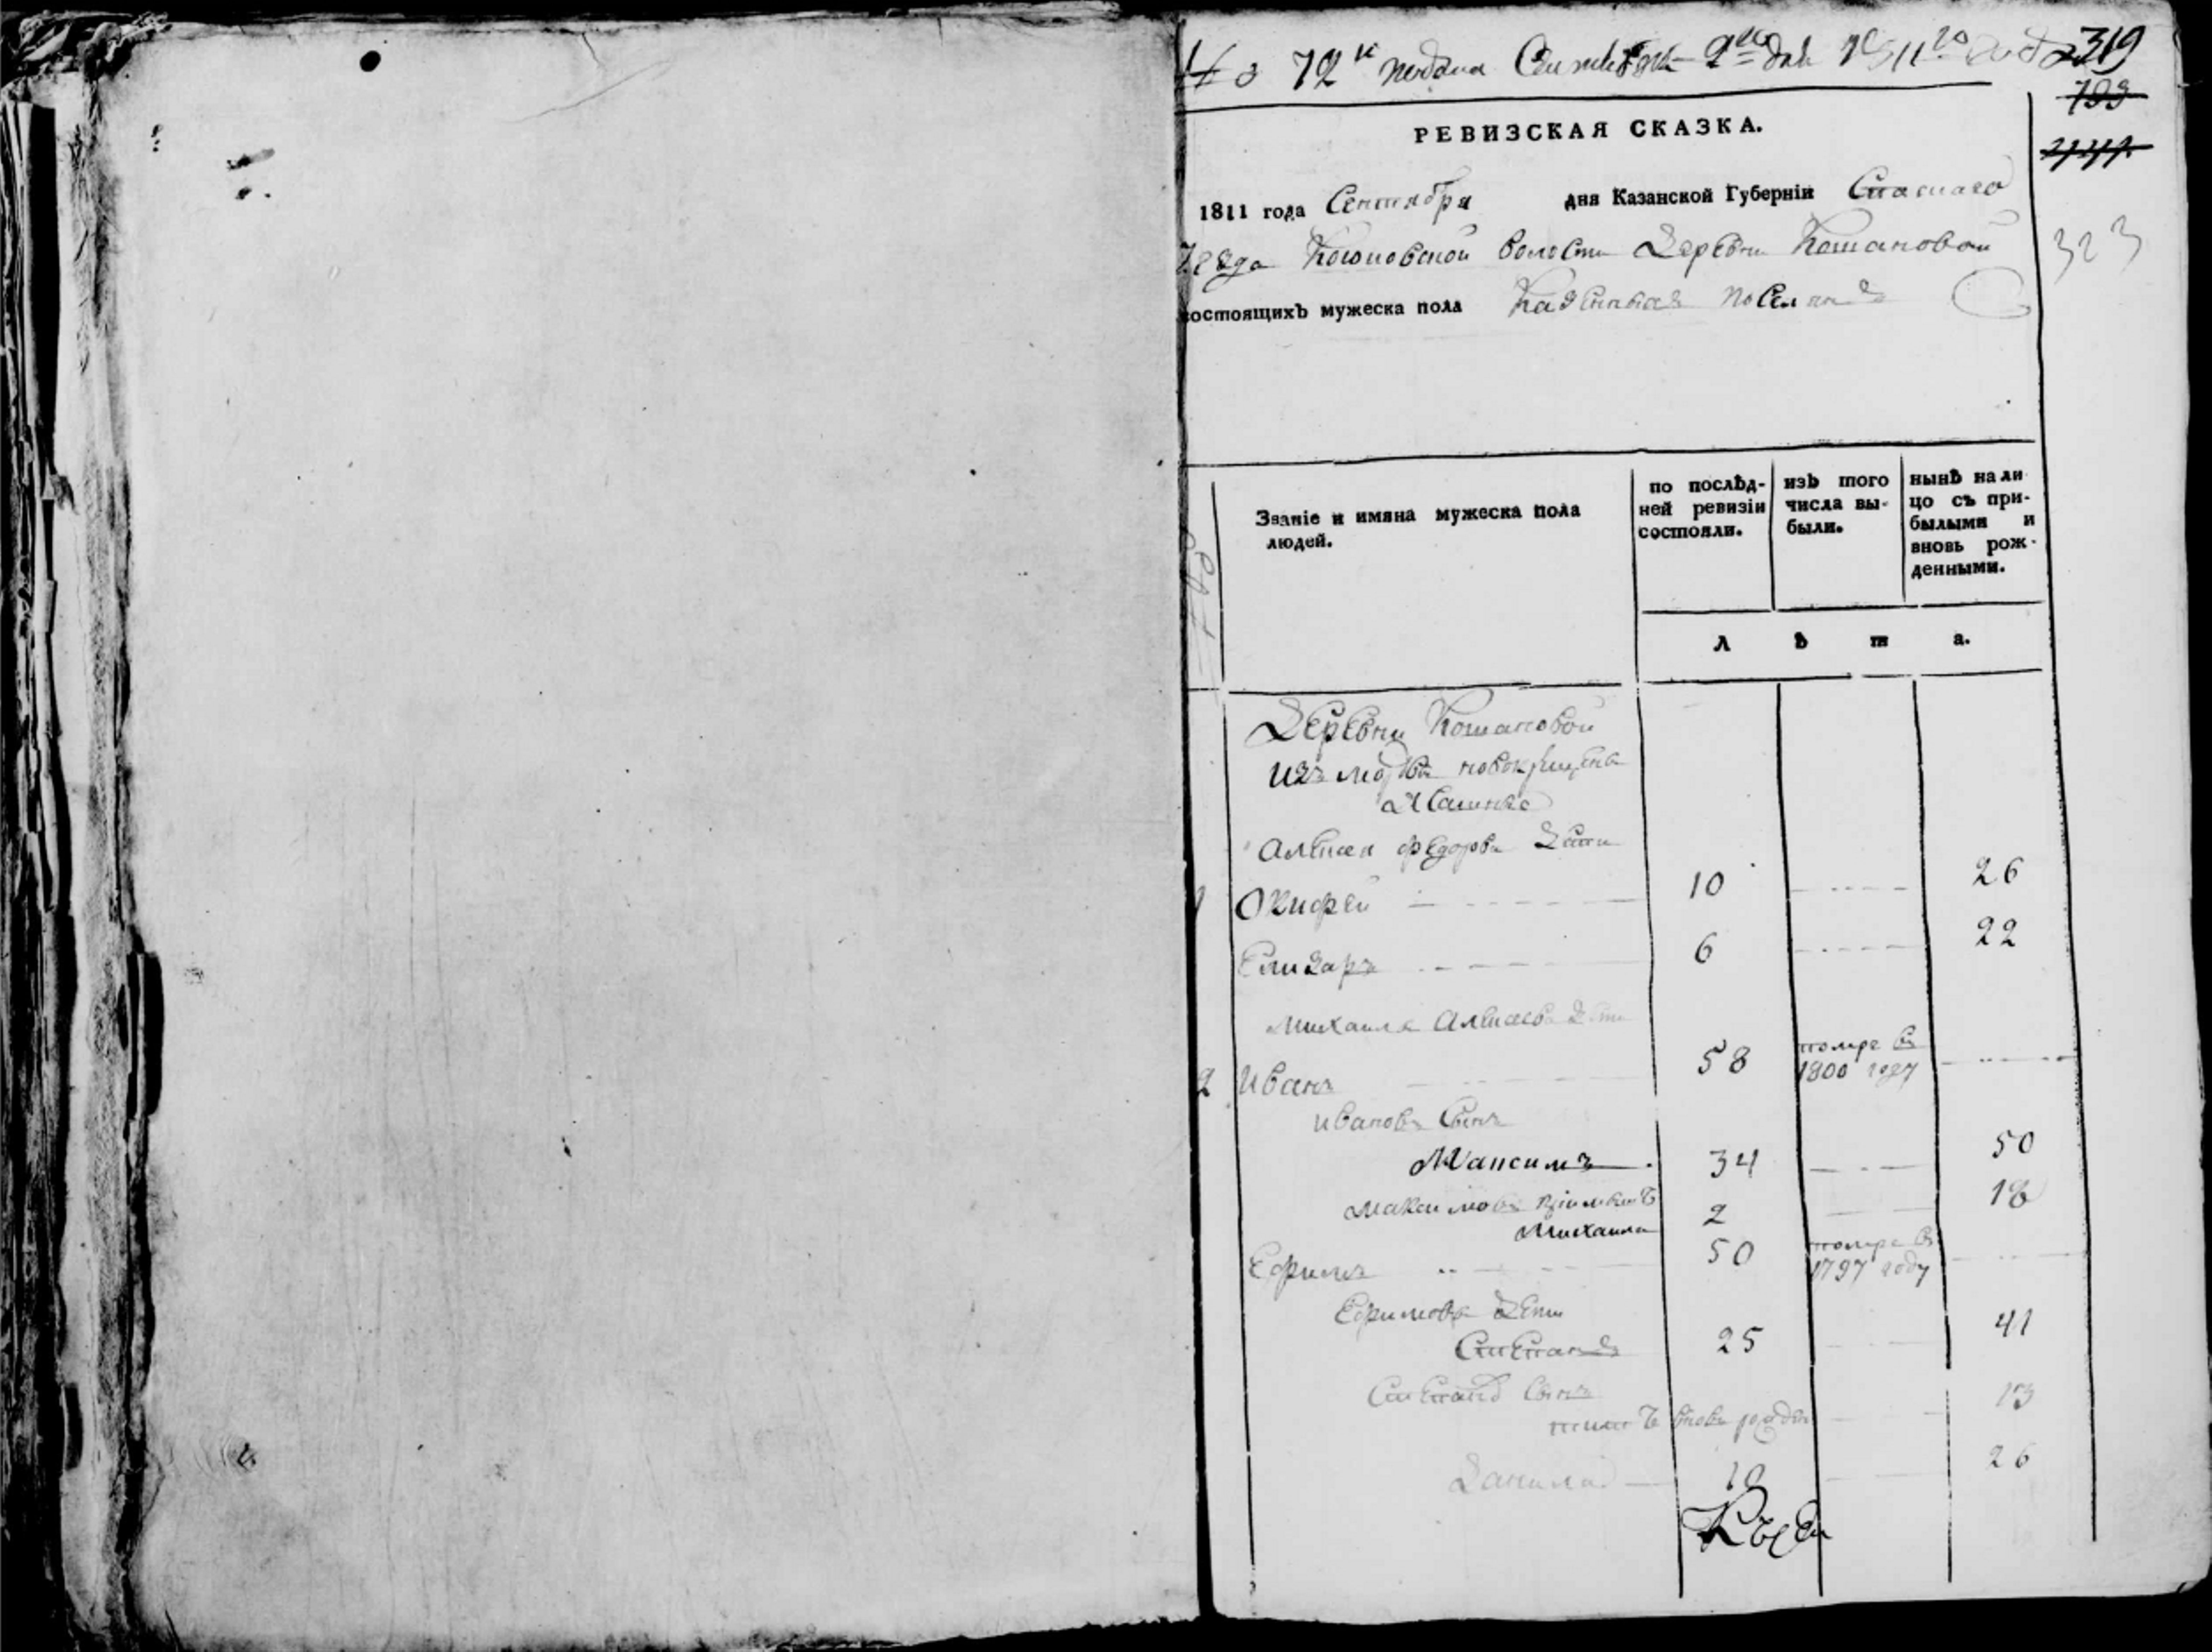 № 72й подана Сентября 9го дня 1811го года 319
793
РЕВИЗСКАЯ СКАЗКА.
1811 года Сентября дня Казанской Губерніи Спаскаго
323
уезда волости деревни Кошановой
состоящихъ мужеска пола
Званіе и имяна мужеска пола людей.
по послѣдней ревизіи состояли.
изъ того числа выбыли.
нынѣ на лицо съ прибылыми и вновь рожденными.
л ѣ т а.
деревни Кошановой
изъ мордвы новокрещены
ясашные
Алексея федорова дети
1 Окифей 10 26
Елизаръ 6 22
михаила Алексеева дети
2 Иванъ 58 помре въ 1800 году
ивановъ сынъ
Максимъ 34 50
максимовъ
михаила 2 18
Ефимъ 50 помре въ 1797 году
Ефимовы дети
Степанъ 25 41
Степановъ сынъ
вновь рожденъ 13
Данила 10 26